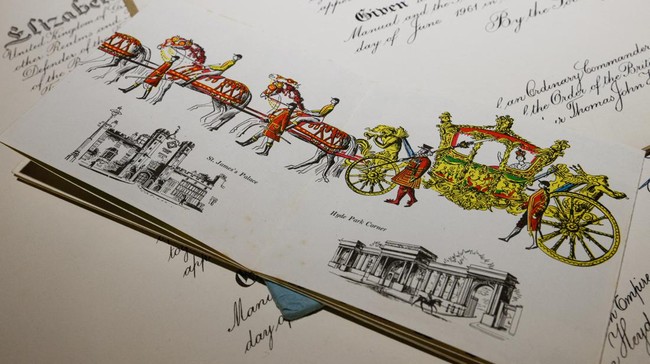 Elizabe
United Kingdom of
other Realms and
Defender of the
of the
Given
Manual and the
day of June 1961
By the
an Ordinary Commander
the Order of the
Thomas John
St. James's Palace
Hyde Park Corner
to
app
Mani
day of
Empire
Heyd